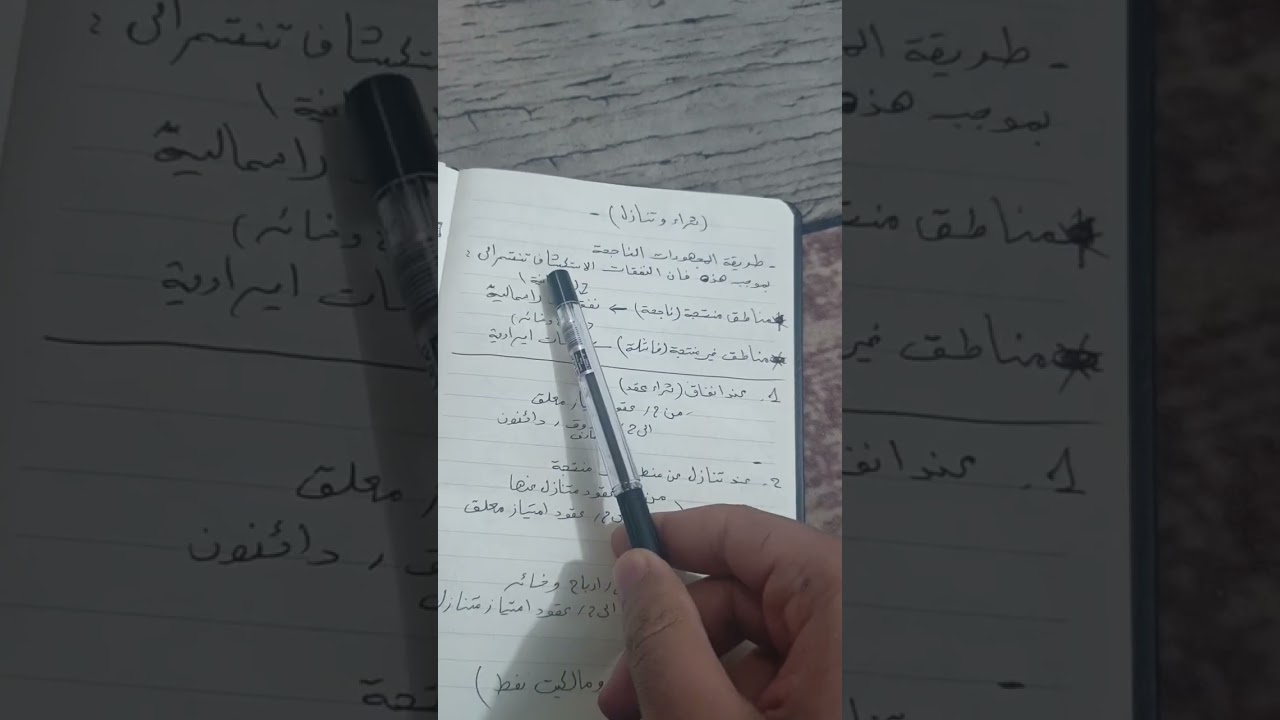 (شراء وتنازل) -
- طريقة المجهودات الناجحة
بموجب هذه فان النفقات الاستكشاف تنقسم الى :
* مناطق منتجة (ناجحة) ← راسمالية
* مناطق غير منتجة (فاشلة) ← ايرادية
1. عند انفاق (شراء عقد)
من ح/ عقود معلق
الى ح/ دائنون
2. عند تنازل عن منتجة
من عقود متنازل عنها
الى ح/ عقود امتياز معلق
ارباح وخسائر
الى ح/ عقود امتياز متنازل
ومالكيت نفط)